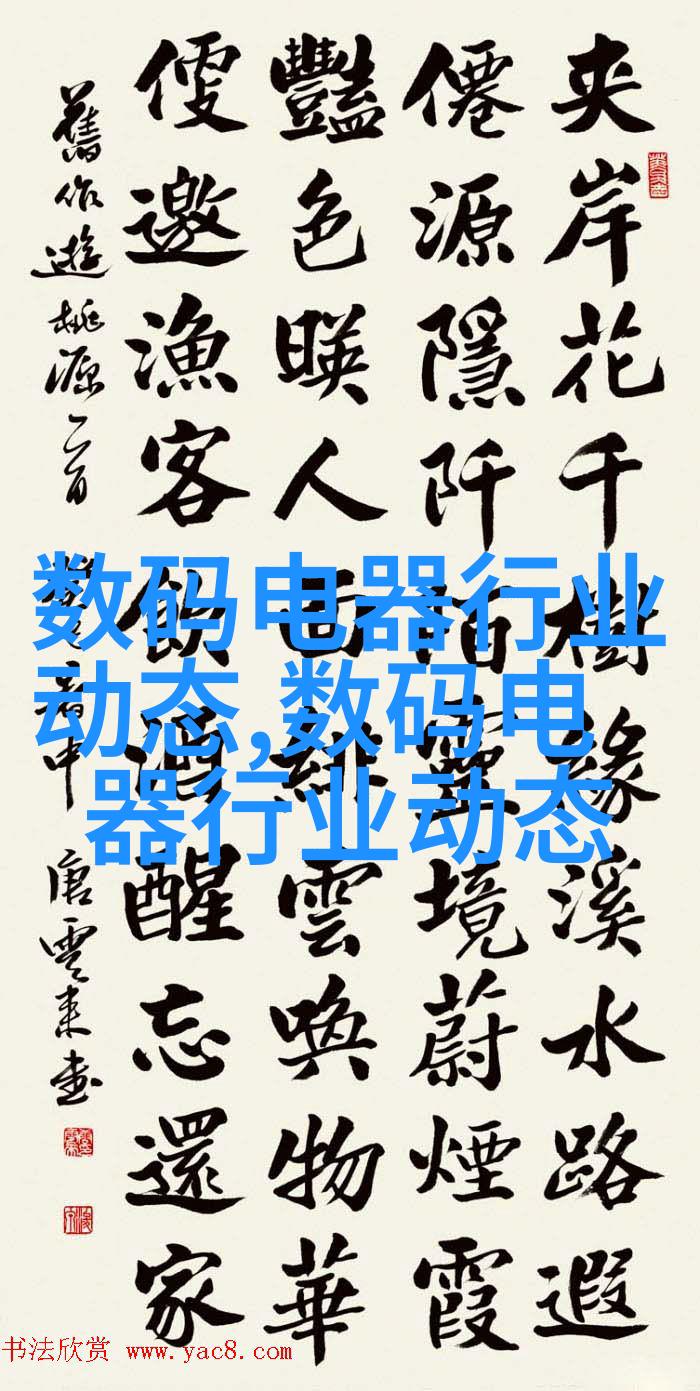 夹岸花千樹緣溪水路遐
僊源隱阡陌靈境蔚煙霞
豔色暎人面緋雲喚物華
便邀漁客飲酒醒忘還家
舊作遊桃源二首 暑中 唐雲來書
数码电器行业
动态,数码电
器行业动态
书法欣赏 www.yac8.com